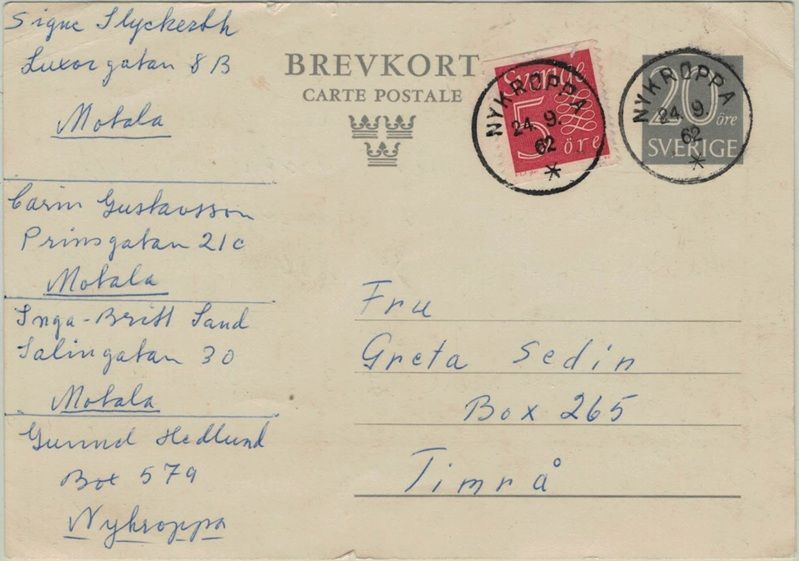 Signe Slyckerth
Luxorgatan 8 B
Motala
Carin Gustavsson
Prinsgatan 21c
Motala
Inga-Britt Sand
Salingatan 30
Motala
Gunnel Hedlund
Box 579
Nykroppa
BREVKORT
CARTE POSTALE
Sverige
5
öre
NYKROPPA
24. 9.
62
*
20
öre
SVERIGE
NYKROPPA
24. 9.
62
*
Fru
Greta Sedin
Box 265
Timrå